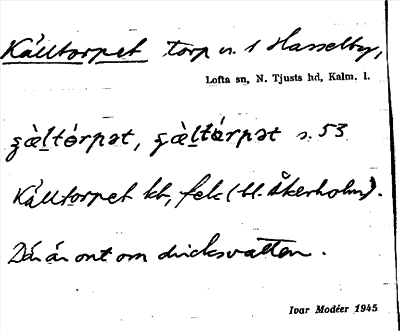 Källtorpet torp u. 1 Hasselby,
Lofta sn, N. Tjusts hd, Kalm. l.
ʂæ̀ltórpət, ʂæ̀ltórpət s. 53
Källtorpet kb, fek (bl. Åkerholm).
Där är ont om dricksvatten.
Ivar Modéer 1945